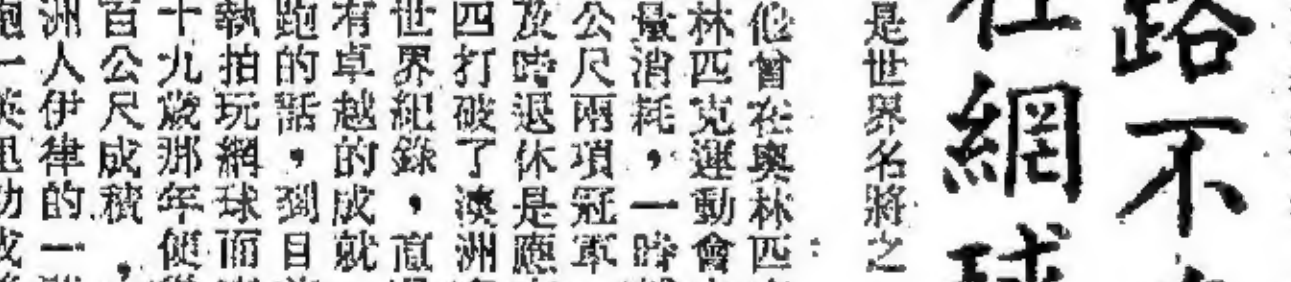 路不
在網球
是世界名將之
他曾在奧林匹
林匹克運動會
量消耗，一時
公尺兩項冠軍
及時退休是應
四打破了澳洲
世界紀錄，直
有卓越的成就
跑的話，到目
執拍玩網球而
十九歲那年便
百公尺成積，
洲人伊律的一